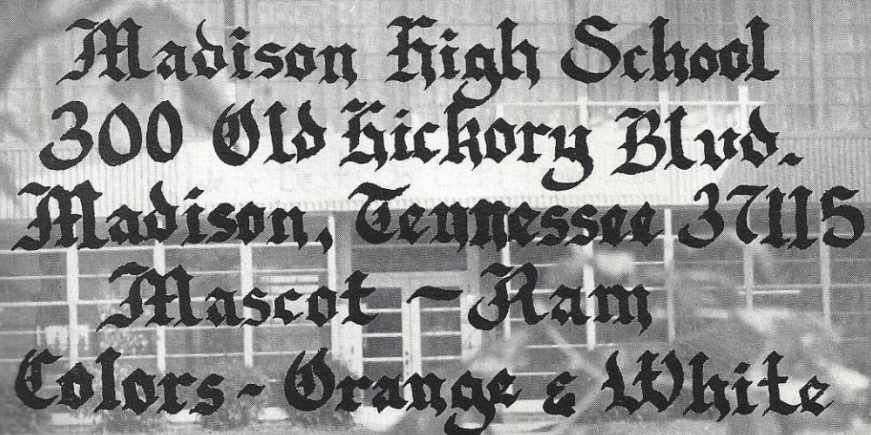 Madison High School
300 Old Hickory Blvd.
Madison, Tennessee 37115
Mascot - Ram
Colors - Orange & White